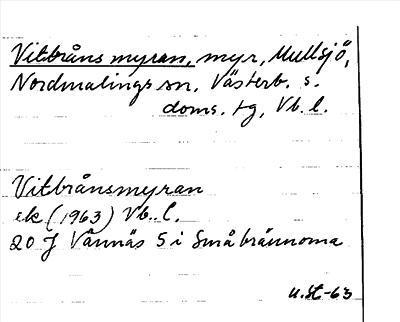 Vitbrånsmyran, myr, Mullsjö,
Nordmalings sn. Västerb. s.
doms. tg, Vb. l.
Vitbrånsmyran
ek (1963) Vb. l.
20 J Vännäs 5 i Småbrännorna
U.St-63